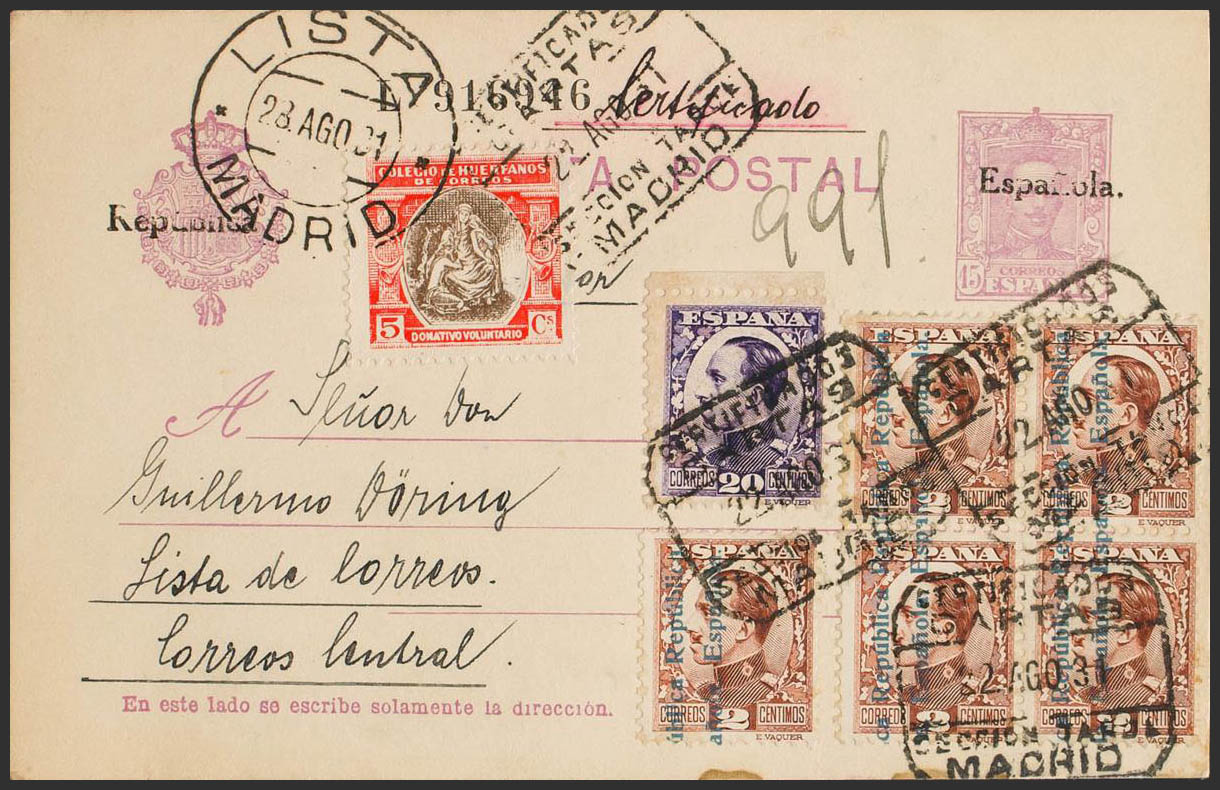 LISTA
28.AGO.31
MADRID
L 916946
Certificado
CERTIFICADO
CARTAS
22 AGO 31
SECCION TARDE
MADRID
TA POSTAL
991
República
Española.
15
CORREOS
ESPAÑA
COLEGIO DE HUERFANOS
DE CORREOS
5 Cs
DONATIVO VOLUNTARIO
or
A Señor Don
Guillermo Döring
Lista de Correos.
Correos Central.
En este lado se escribe solamente la dirección.
ESPAÑA
CORREOS 20 CENTIMOS
E.VAQUER
CERTIFICADOS
CARTAS
22 AGO 31
SECCION TARDE
MADRID
ESPAÑA
CORREOS 2 CENTIMOS
E.VAQUER
República
Española.
ESPAÑA
CORREOS 2 CENTIMOS
E.VAQUER
República
Española.
CERTIFICADOS
CARTAS
22 AGO
SECCION
ESPAÑA
CORREOS 2 CENTIMOS
E.VAQUER
ública República
ESPAÑA
CORREOS 2 CENTIMOS
E.VAQUER
República
Española
ESPAÑA
2 CENTIMOS
República
Española
CERTIFICADOS
CARTAS
22 AGO 31
SECCION TARDE
MADRID